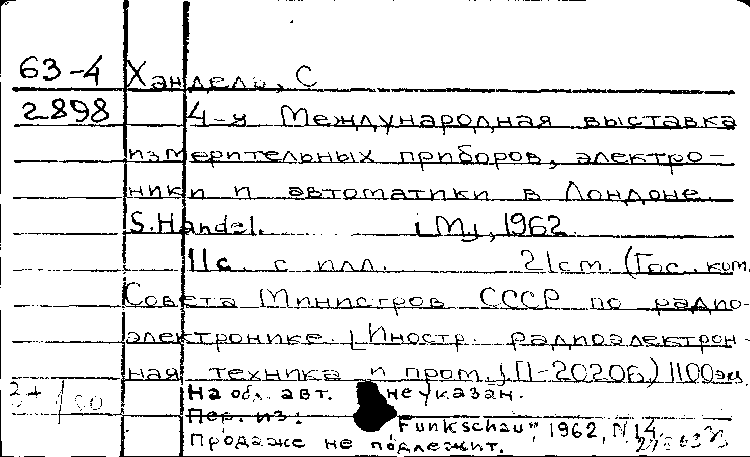 63-4 Хандель, С
2898 4-я Международная выставка
измерительных приборов, электро-
ники и автоматики в Лондоне.
S. Handel. [М], 1962.
11с. с илл. 21cm. (Гос. ком.
Совета Министров СССР по радио-
электронике. [Иностр. радиоэлектрон-
ная техника и пром.]. П-20206) 1100экз
На обл. авт. не указан.
Пер. из: "Funkschau", 1962, N14.
Продаже не подлежит.